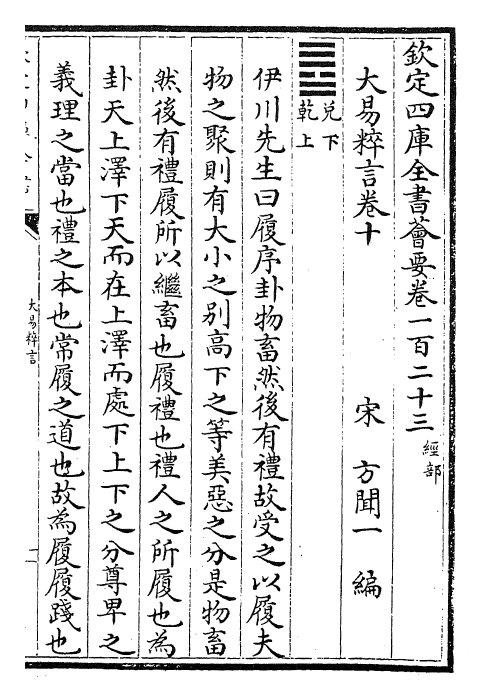 欽定四庫全書薈要卷一百二十三
經部
大易粹言卷十
宋 方聞一 編
兌下
乾上
伊川先生曰履序卦物畜然後有禮故受之以履夫
物之聚則有大小之別高下之等美惡之分是物畜
然後有禮履所以繼畜也履禮也禮人之所履也為
卦天上澤下天而在上澤而處下上下之分尊卑之
義理之當也禮之本也常履之道也故為履履踐也
大易粹言